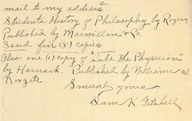 mail to my address
Students History of Philosophy by Rogers
Published by Macmillan & Co
Send five (5) copies
Also one (1) copy of "Luke the Physician"
by Harnack. Published by Williams and
Norgate.
Sincerely yours
Dana K Getchell